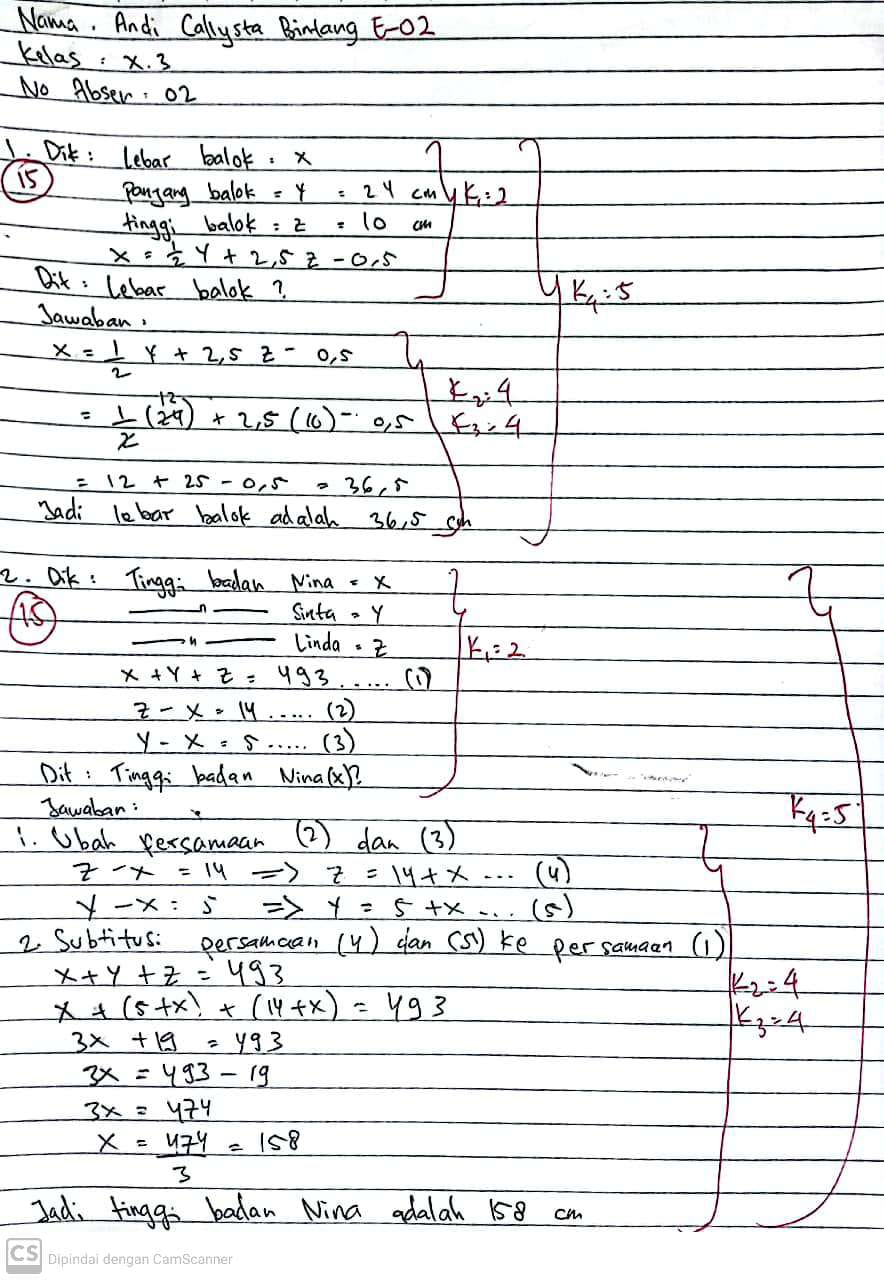 Nama . Andi Callysta Bintang E-02
Kelas : X.3
No Absen : 02
1. Dik : Lebar balok : x
15
Panjang balok = y = 24 cm K1:2
tinggi balok : z = 10 cm
x = 1/2 y + 2,5 z - 0,5
Dit : Lebar balok ? K4:5
Jawaban :
x = 1/2 y + 2,5 z - 0,5
K2:4
= 1/2 (24) 12 + 2,5 (10) - 0,5 K3:4
= 12 + 25 - 0,5 = 36,5
Jadi lebar balok adalah 36,5 cm
2. Dik : Tinggi badan Nina = x
15
—— n —— Sinta = y
—— n —— Linda = z K1=2
x + y + z = 493 ..... (1)
z - x = 14 ..... (2)
y - x = 5 ..... (3)
Dit : Tinggi badan Nina (x)?
Jawaban : K4=5
1. Ubah persamaan (2) dan (3)
z - x = 14 => z = 14 + x ... (4)
y - x = 5 => y = 5 + x ... (5)
2. Subtitusi persamaan (4) dan (5) ke persamaan (1)
x + y + z = 493 K2=4
x + (5+x) + (14+x) = 493 K3=4
3x + 19 = 493
3x = 493 - 19
3x = 474
x = 474/3 = 158
Jadi tinggi badan Nina adalah 158 cm
CS Dipindai dengan CamScanner